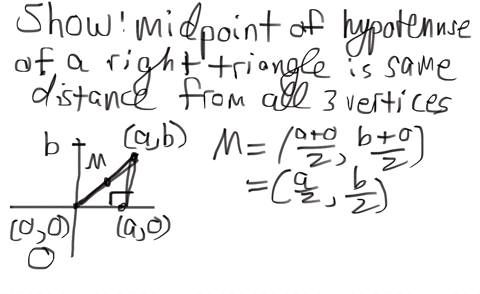 Show! midpoint of hypotenuse
of a right triangle is same
distance from all 3 vertices
b M (a,b) M = (a+0/2, b+0/2)
= (a/2, b/2)
(0,0) (a,0)
O